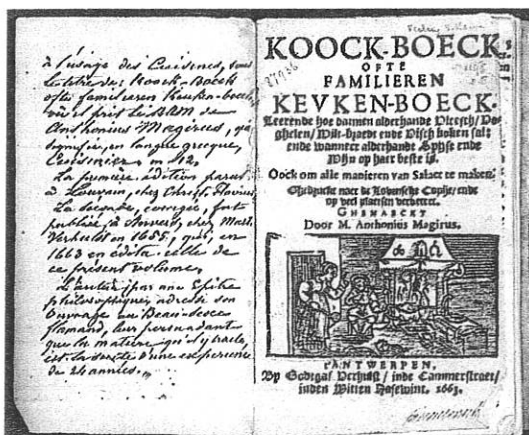 à l'usage des Cuisines, sous
le titre de: Koock-Boeck
ofte familieren Keuken-boeck,
où il prit le nom de
Anthonius Magirus, qui
signifie, en langue grecque,
Cuisinier, in 12,
La première édition parut
à Louvain, chez Christ. Flavius.
La seconde, corrigée, fut
publiée, à Anvers, chez Mart.
Verhulst en 1655, qui, en
1663 en édita celle de
ce présent volume,
L'auteur, par une Epitre
philosophique, adressa son
Ouvrage au Beau-sexe
flamand, leur persuadant
que la matière qu'il y traite,
est la suite d'une expérience
de 24 années.
27936
KOOCK-BOECK
OFTE
FAMILIEREN
KEVKEN-BOECK.
Leerende hoe datmen alderhande Vleesch / Vo-
ghelen / Wilt-braedt ende Visch koken sal:
ende wanneer alderhande Spyse ende
Wijn op haer beste is.
Oock om alle manieren van Salaet te maken.
Ghedruckt naer de Lovensche Copije, ende
op veel plaetsen verbetert.
GHEMAECKT
Door M. Anthonius Magirus.
T'ANTWERPEN,
By Godtgaf Verhulst / inde Cammerstraet /
inden Witten Hasewint. 1663.